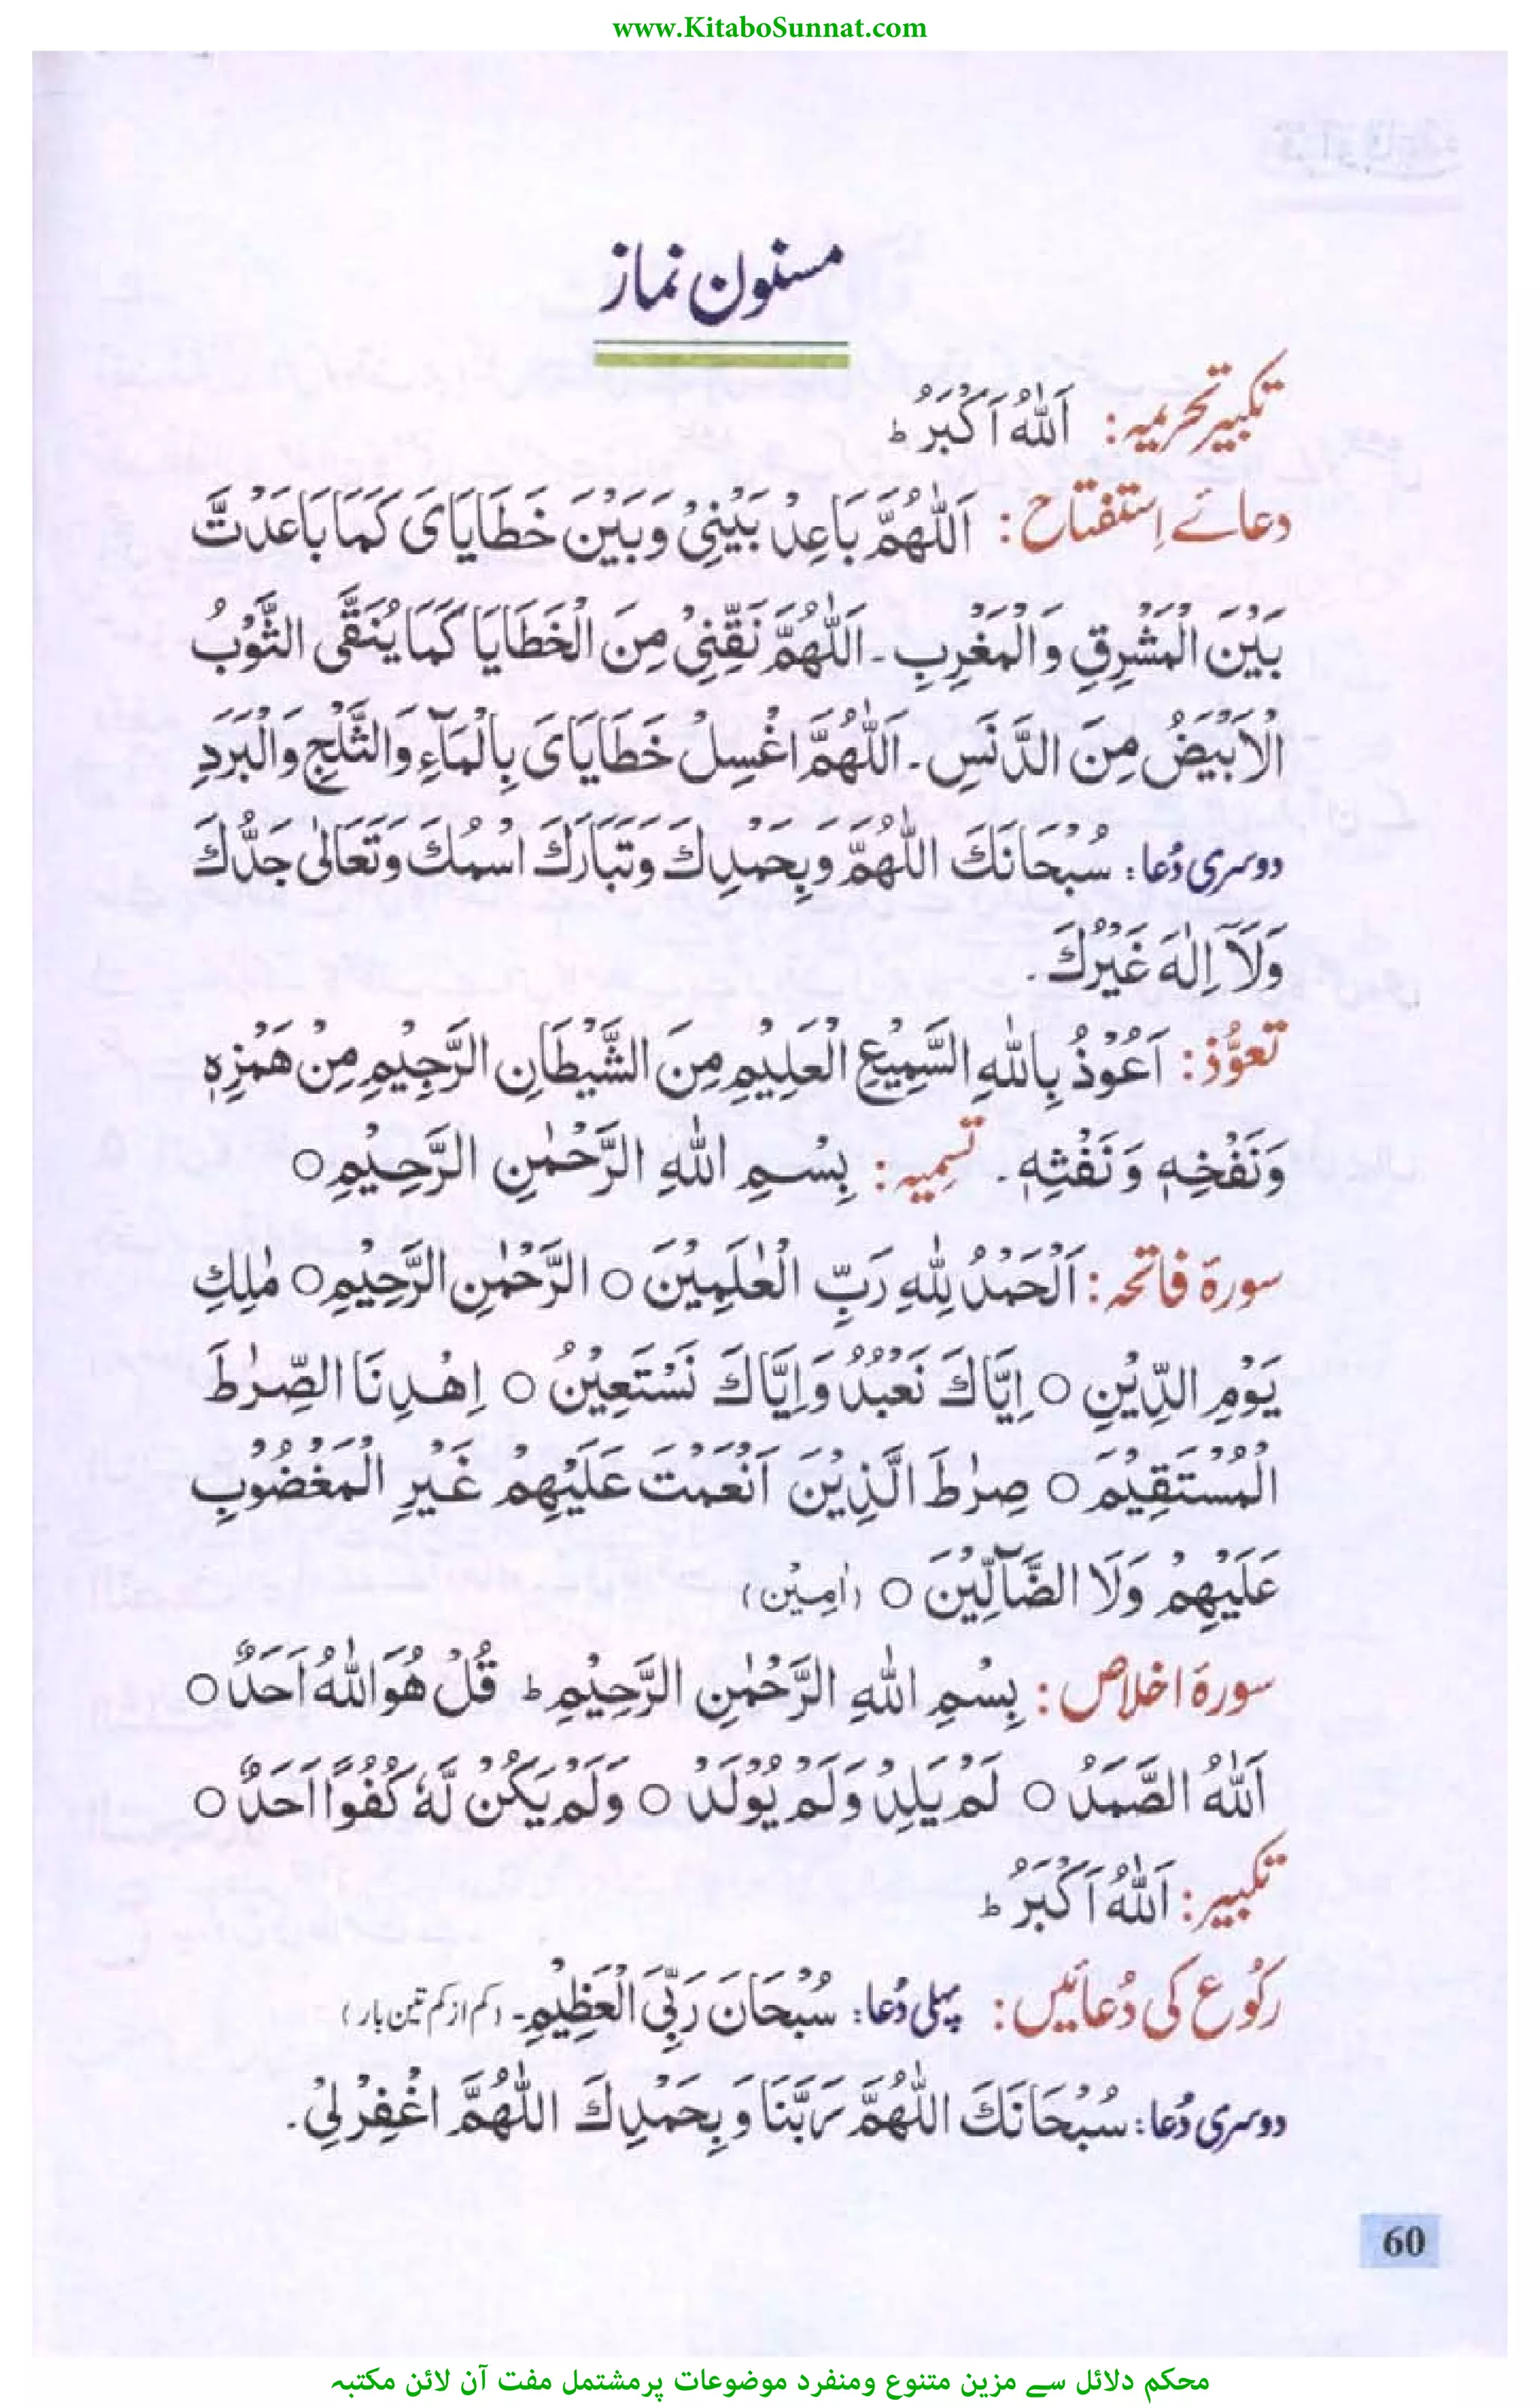 www.KitaboSunnat.com
مسنون نماز
تکبیر تحریمہ: اَللّٰهُ اَكْبَرُ ؕ
دعائے اِستفتاح: اَللّٰهُمَّ بَاعِدْ بَيْنِيْ وَبَيْنَ خَطَايَايَ كَمَا بَاعَدْتَّ
بَيْنَ الْمَشْرِقِ وَالْمَغْرِبِ۔ اَللّٰهُمَّ نَقِّنِيْ مِنَ الْخَطَايَا كَمَا يُنَقَّى الثَّوْبُ
الْاَبْيَضُ مِنَ الدَّنَسِ۔ اَللّٰهُمَّ اغْسِلْ خَطَايَايَ بِالْمَآءِ وَالثَّلْجِ وَالْبَرَدِ
دوسری دُعا: سُبْحَانَكَ اللّٰهُمَّ وَبِحَمْدِكَ وَتَبَارَكَ اسْمُكَ وَتَعَالٰى جَدُّكَ
وَلَآ اِلٰهَ غَيْرُكَ۔
تعوُّذ: اَعُوْذُ بِاللّٰهِ السَّمِيْعِ الْعَلِيْمِ مِنَ الشَّيْطَانِ الرَّجِيْمِ مِنْ هَمْزِهٖ
وَنَفْخِهٖ وَنَفْثِهٖ۔ تَسمِیہ: بِسْمِ اللّٰهِ الرَّحْمٰنِ الرَّحِيْمِ ○
سورۂ فاتحہ: اَلْحَمْدُ لِلّٰهِ رَبِّ الْعٰلَمِيْنَ ○ الرَّحْمٰنِ الرَّحِيْمِ ○ مٰلِكِ
يَوْمِ الدِّيْنِ ○ اِيَّاكَ نَعْبُدُ وَاِيَّاكَ نَسْتَعِيْنُ ○ اِهْدِنَا الصِّرٰطَ
الْمُسْتَقِيْمَ ○ صِرٰطَ الَّذِيْنَ اَنْعَمْتَ عَلَيْهِمْ غَيْرِ الْمَغْضُوْبِ
عَلَيْهِمْ وَلَا الضَّآلِّيْنَ ○ (اٰمِيْن)
سورۂ اخلاص: بِسْمِ اللّٰهِ الرَّحْمٰنِ الرَّحِيْمِ ؕ قُلْ هُوَ اللّٰهُ اَحَدٌ ○
اَللّٰهُ الصَّمَدُ ○ لَمْ يَلِدْ وَلَمْ يُوْلَدْ ○ وَلَمْ يَكُنْ لَّهٗ كُفُوًا اَحَدٌ ○
تکبیر: اَللّٰهُ اَكْبَرُ ؕ
رکُوع کی دُعائیں: پہلی دُعا: سُبْحَانَ رَبِّيَ الْعَظِيْمِ۔ (کم از کم تین بار)
دوسری دُعا: سُبْحَانَكَ اللّٰهُمَّ رَبَّنَا وَبِحَمْدِكَ اللّٰهُمَّ اغْفِرْلِيْ۔
60
محکم دلائل سے مزین متنوع ومنفرد موضوعات پر مشتمل مفت آن لائن مکتبہ